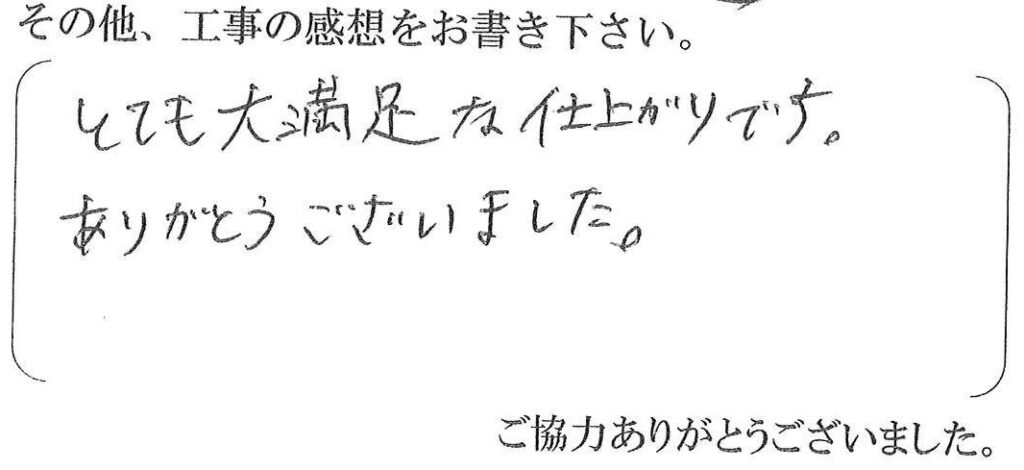 その他、工事の感想をお書き下さい。
とても大満足な仕上がりです。
ありがとうございました。
ご協力ありがとうございました。